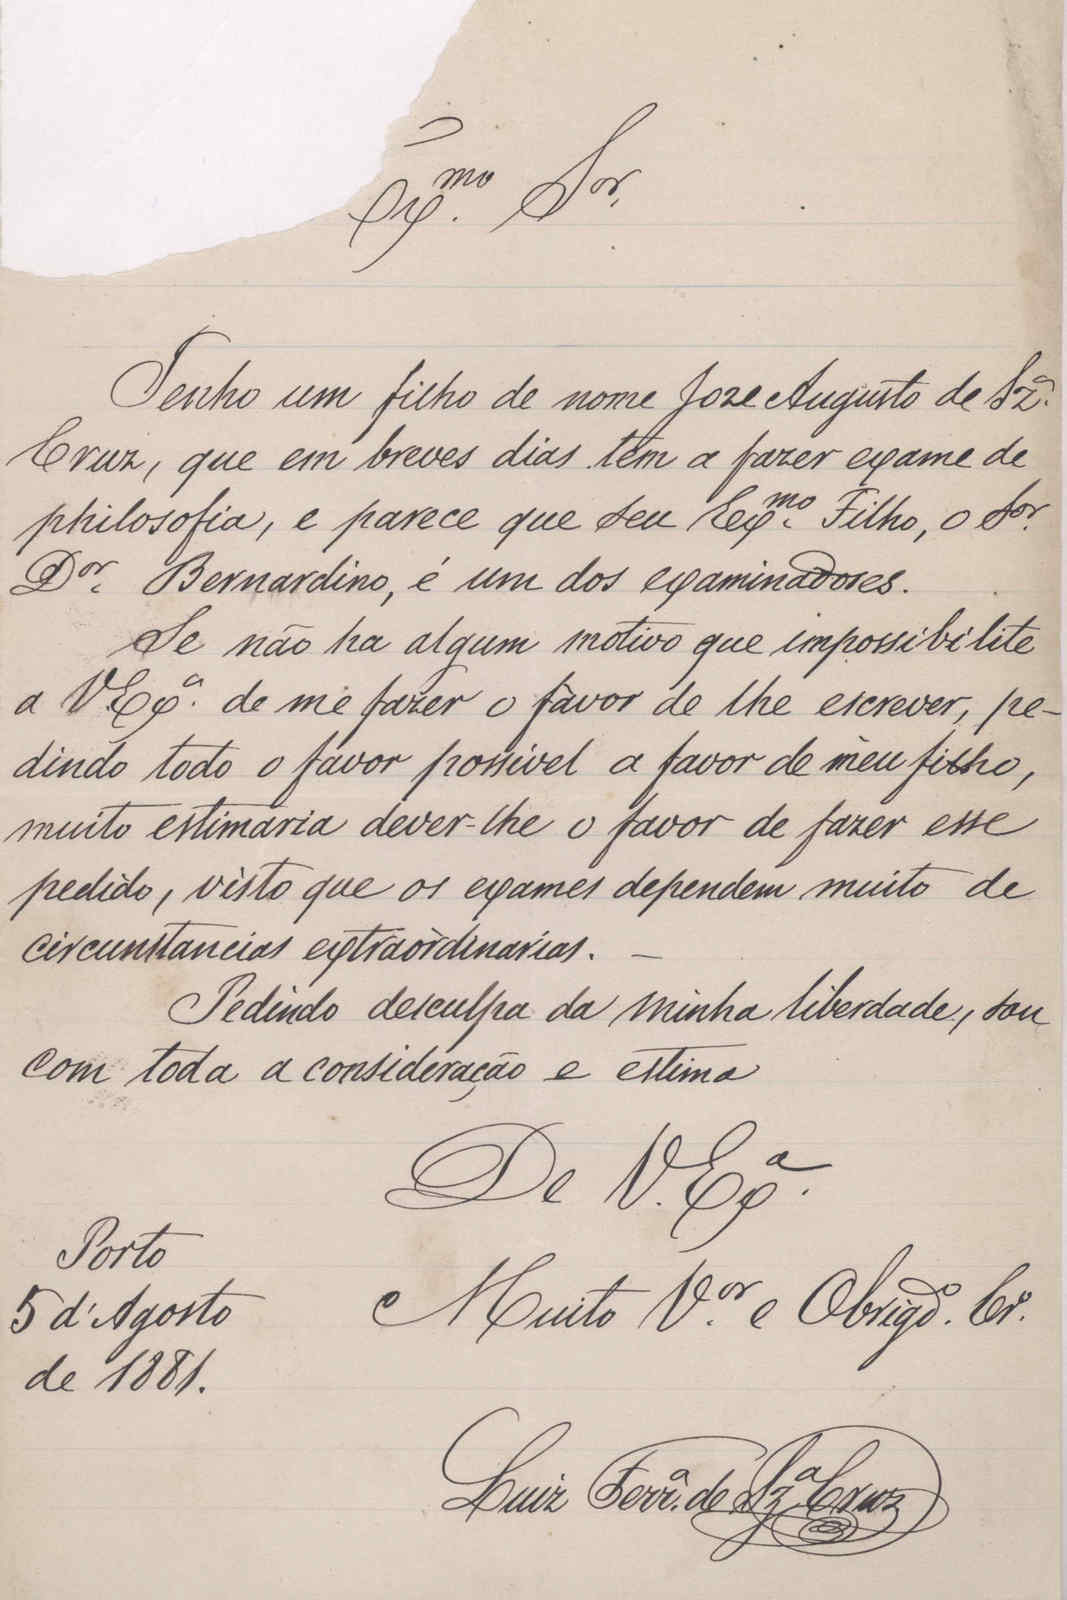 Exmo. Sor.
Tenho um filho de nome Joze Augusto de Sza.
Cruz, que em breves dias tem a fazer exame de
philosofia, e parece que seu Exmo. Filho, o Sor.
Dor. Bernardino, é um dos examinadores.
Se não ha algum motivo que impossibilite
a V.Exa. de me fazer o favor de lhe escrever, pe-
dindo todo o favor possivel a favor de meu filho,
muito estimaria dever-lhe o favor de fazer esse
pedido, visto que os exames dependem muito de
circunstancias extraordinarias. —
Pedindo desculpa da minha liberdade, sou
com toda a consideração e estima
De V. Exa.
Porto
5 d'Agosto
de 1881.
Muito Vor. e Obrigdo. Cro.
Luiz Ferra. de Sza. Cruz